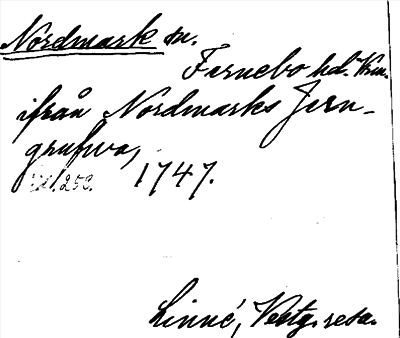 Nordmark sn.
Fernebo hd. Vrm.
ifrån Nordmarks Jern-
grufwa,
s. 252. 1747.
Linné, Vestg. resa.